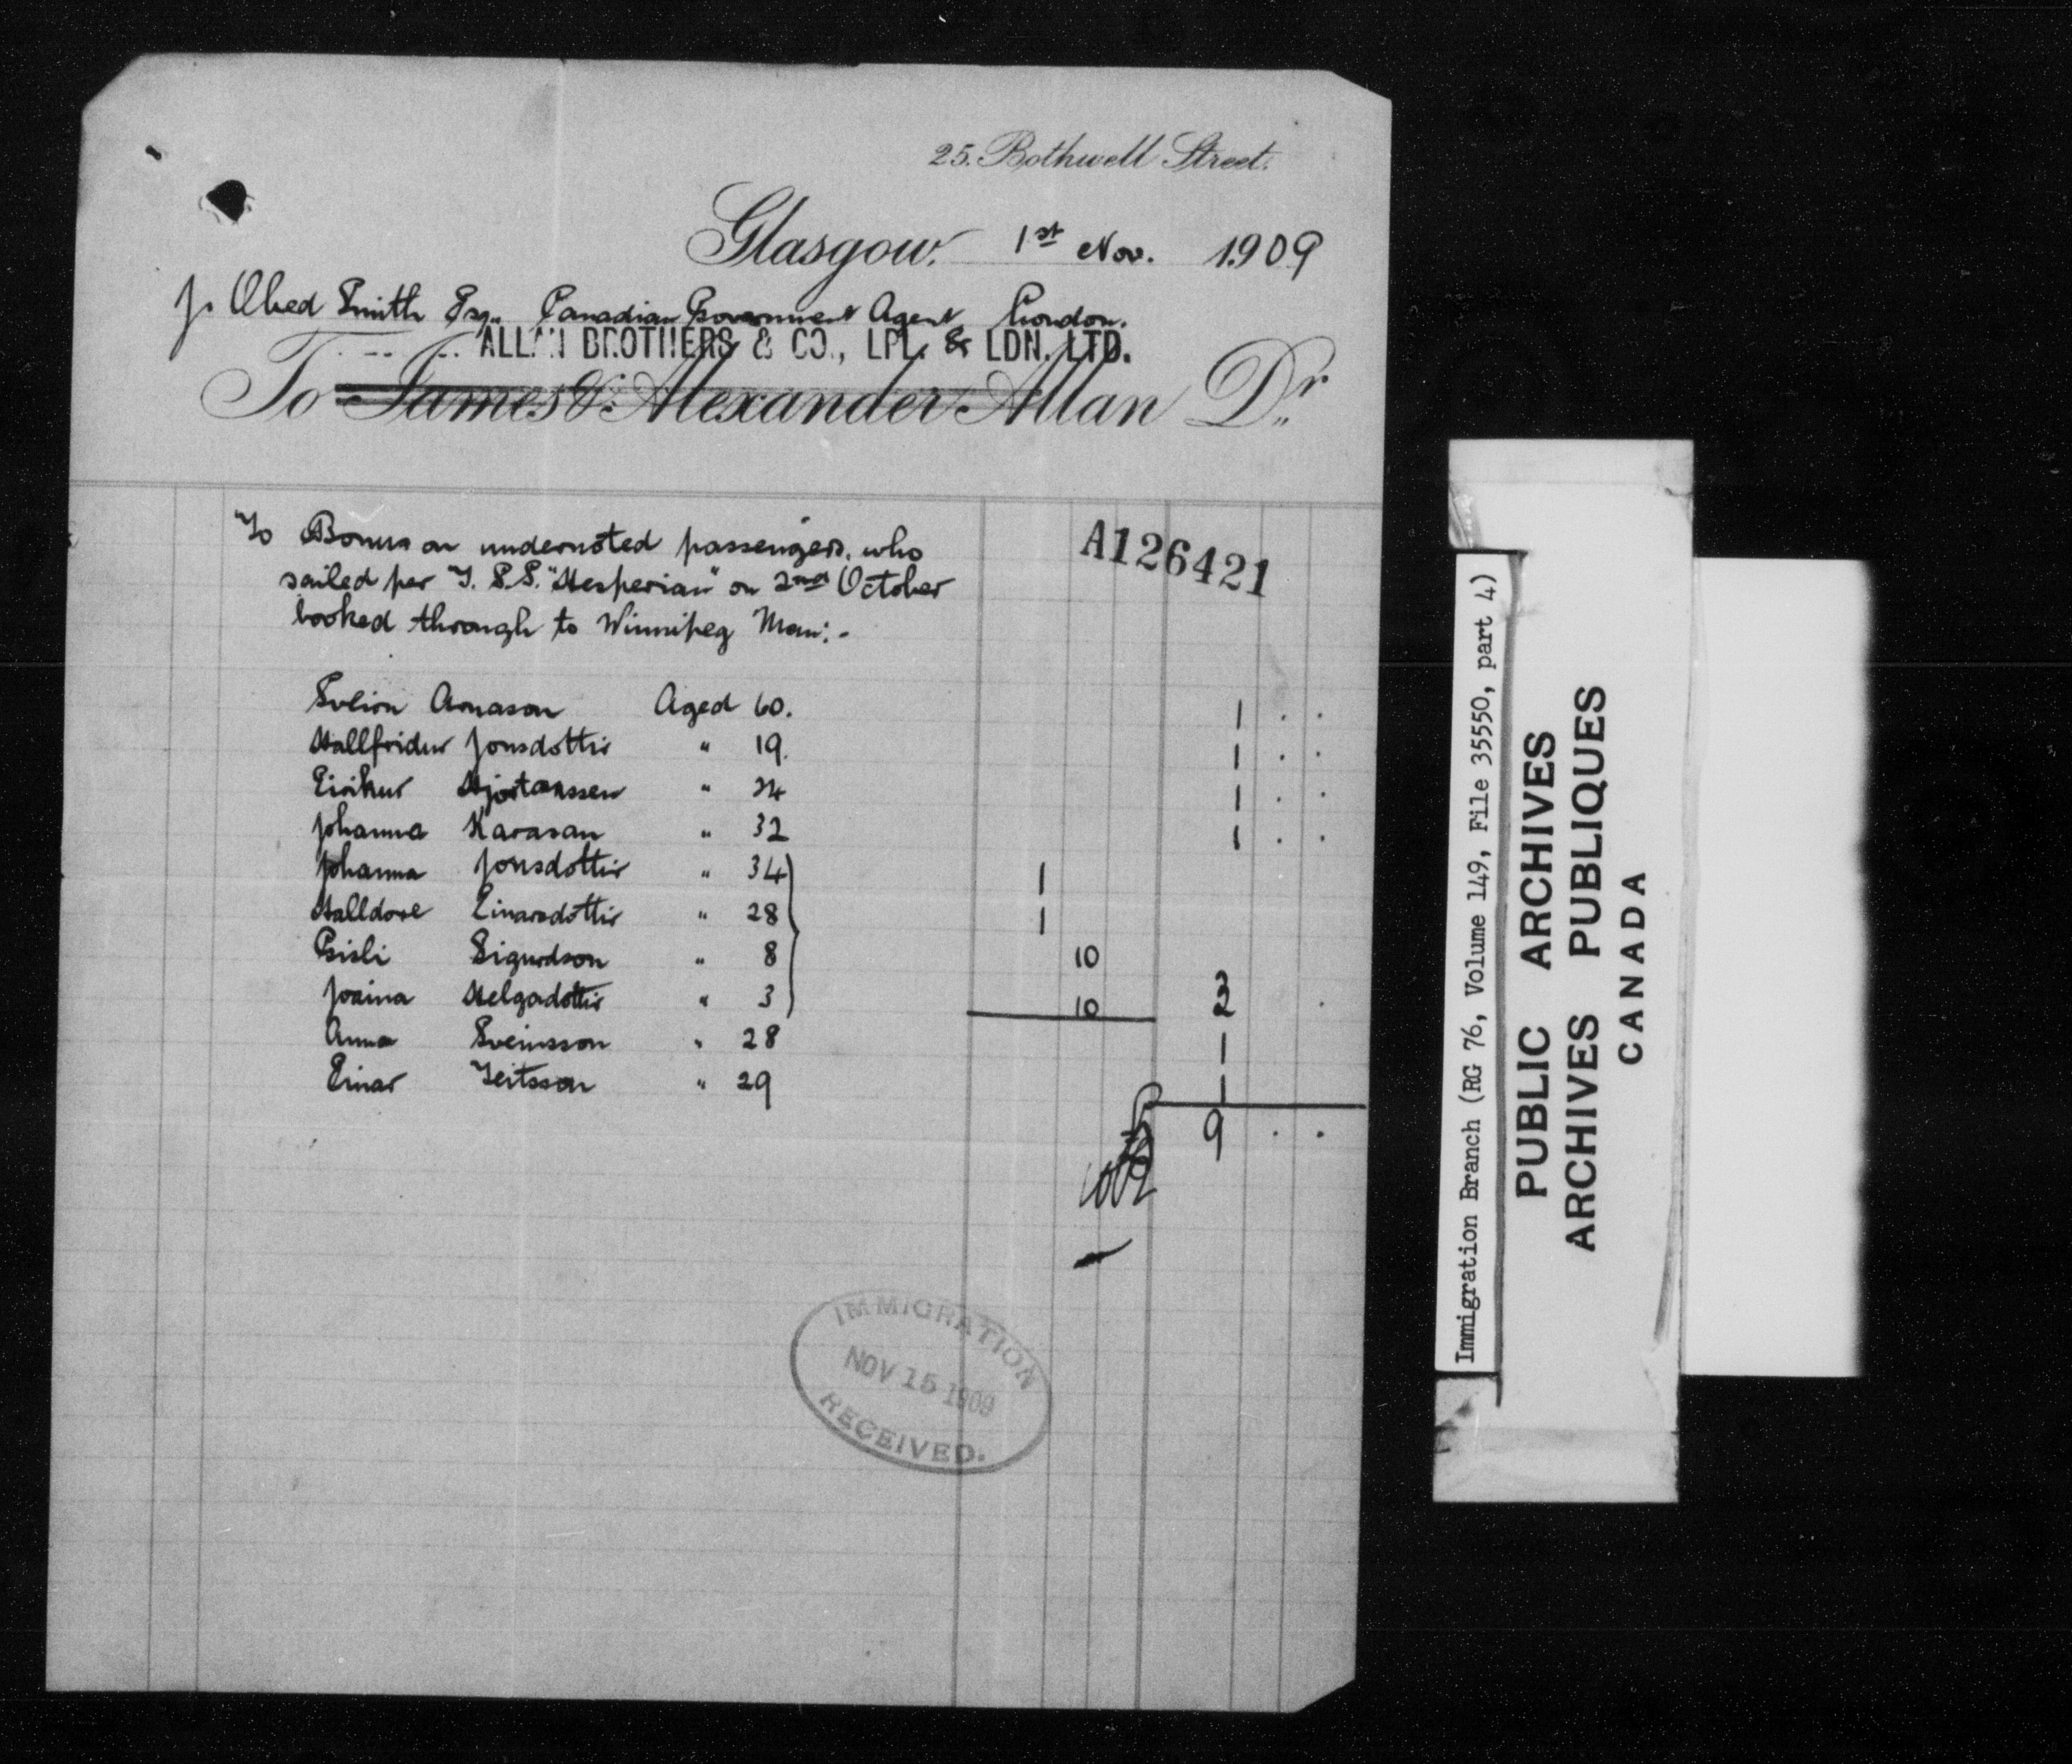 25. Bothwell Street.
Glasgow. 1st Nov. 1909
J. Obed Smith Esq. Canadian Government Agent London.
ALLAN BROTHERS & CO., LPL. & LDN. LTD.
To James & Alexander Allan Dr.
A126421
To Bonus on undernoted passengers, who
sailed per T.S.S. "Hesperian" on 2nd October
booked through to Winnipeg Man:-
Arnason Aged 60. 1 . .
Hallfridur Jonsdottir " 19. 1 . .
Eirikur " 24 1 . .
Johanna " 32 1 . .
Johanna Jonsdottir " 34 1
Halldore Einarsdottir " 28 1
Gisli Sigurdson " 8 10
Helgadottir " 3 10 3 .
Anna Sveinsson " 28 1
Einar " 29 1
9 . .
IMMIGRATION
NOV 15 1909
RECEIVED.
Immigration Branch (RG 76, Volume 149, File 35550, part 4)
PUBLIC ARCHIVES
ARCHIVES PUBLIQUES
CANADA